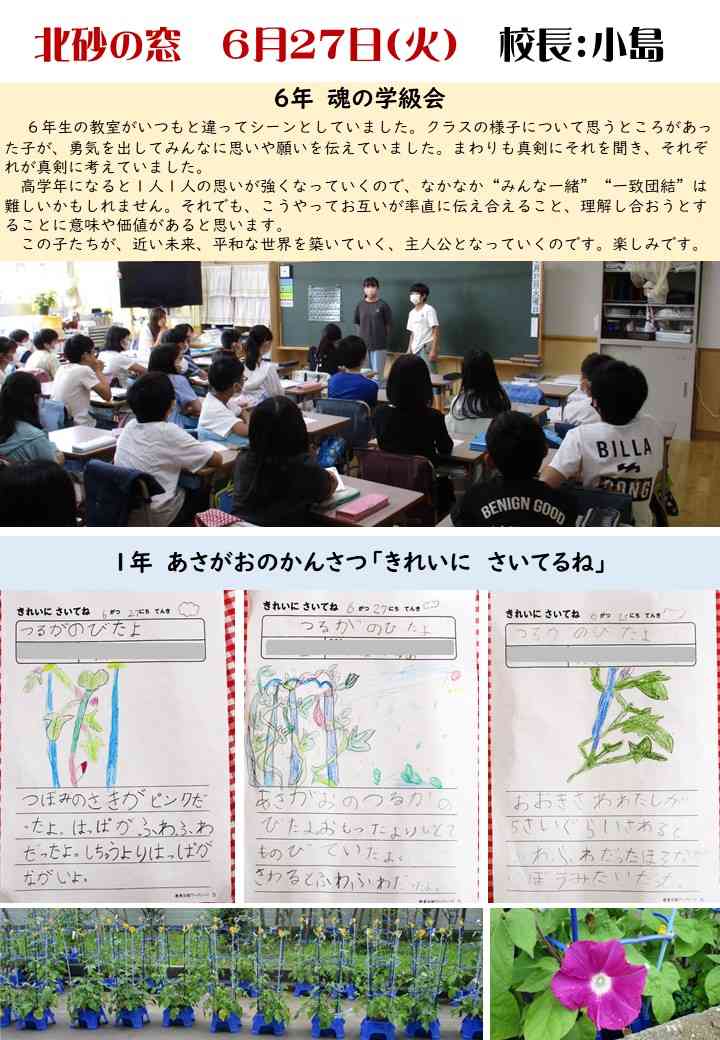 北砂の窓　６月27日(火)　校長:小島
６年 魂の学級会
６年生の教室がいつもと違ってシーンとしていました。クラスの様子について思うところがあっ
た子が、勇気を出してみんなに思いや願いを伝えていました。まわりも真剣にそれを聞き、それぞ
れが真剣に考えていました。
高学年になると１人１人の思いが強くなっていくので、なかなか“みんな一緒” “一致団結”は
難しいかもしれません。それでも、こうやってお互いが率直に伝え合えること、理解し合おうとす
ることに意味や価値があると思います。
この子たちが、近い未来、平和な世界を築いていく、主人公となっていくのです。楽しみです。
BILLA
BENIGN GOOD
１年 あさがおのかんさつ「きれいに さいてるね」
きれいに さいてね 6がつ 27にち てんき
つるがのびたよ
つぼみのさきがピンクだ
ったよ。はっぱがふわふわ
だったよ。しちゅうよりはっぱが
ながいよ。
きれいに さいてね 6がつ 27にち てんき
つるが のびたよ
あさがおのつるがの
びたよ。おもったより
ものびていたよ。
さわるとふわふわだったよ。
きれいに さいてね 6がつ にち てんき
つるがのびたよ
おおきさわわたしが
さわると